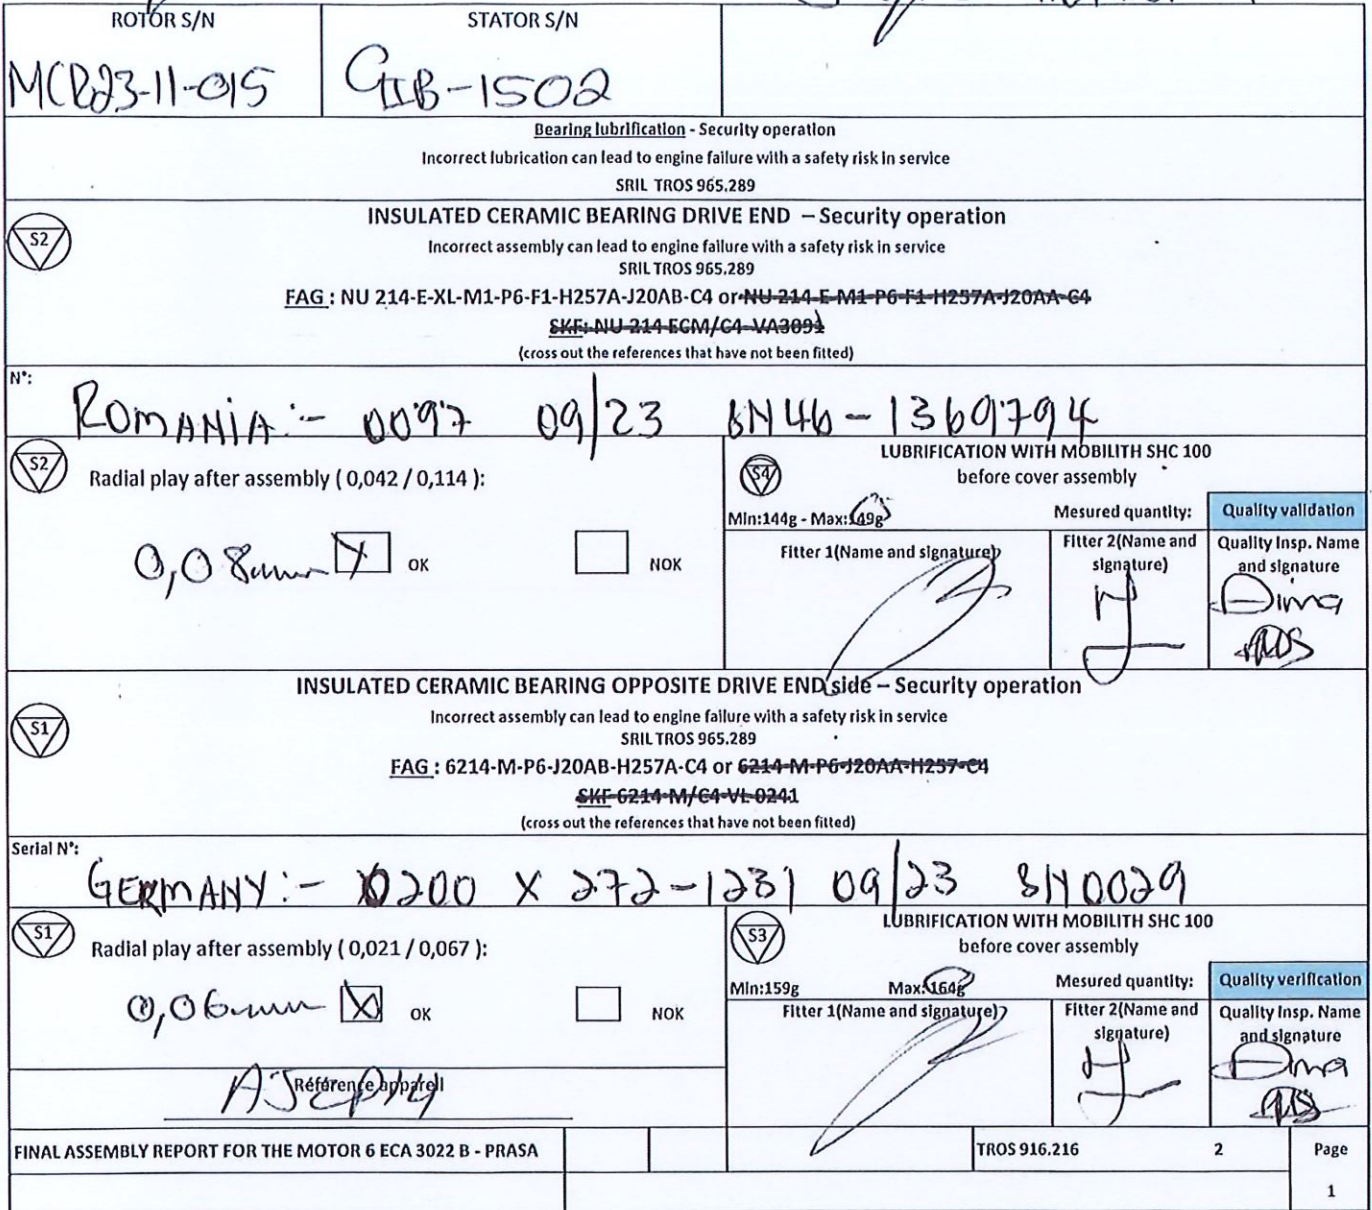 ROTOR S/N STATOR S/N
MCR23-11-015 GIIB-1502
Bearing lubrification - Security operation
Incorrect lubrication can lead to engine failure with a safety risk in service
SRIL TROS 965.289
S2
INSULATED CERAMIC BEARING DRIVE END – Security operation
Incorrect assembly can lead to engine failure with a safety risk in service
SRIL TROS 965.289
FAG : NU 214-E-XL-M1-P6-F1-H257A-J20AB-C4 or NU-214-E-M1-P6-F1-H257A-J20AA-C4
SKF: NU 214 ECM/C4-VA3091
(cross out the references that have not been fitted)
N°:
ROMANIA:- 0097 09/23 SN46-1369794
S2
Radial play after assembly ( 0,042 / 0,114 ):
0,08mm X OK NOK
S4
LUBRIFICATION WITH MOBILITH SHC 100
before cover assembly
Min:144g - Max:149g Mesured quantity: Quality validation
Fitter 1(Name and signature) Fitter 2(Name and signature) Quality Insp. Name and signature
Dima
INSULATED CERAMIC BEARING OPPOSITE DRIVE END side – Security operation
S1
Incorrect assembly can lead to engine failure with a safety risk in service
SRIL TROS 965.289
FAG : 6214-M-P6-J20AB-H257A-C4 or 6214-M-P6-J20AA-H257-C4
SKF 6214-M/C4-VL-0241
(cross out the references that have not been fitted)
Serial N°:
GERMANY:- 0200 X 272-1231 09/23 SN0029
S1
Radial play after assembly ( 0,021 / 0,067 ):
0,06mm X OK NOK
Référence appareil
S3
LUBRIFICATION WITH MOBILITH SHC 100
before cover assembly
Min:159g Max:164g Mesured quantity: Quality verification
Fitter 1(Name and signature) Fitter 2(Name and signature) Quality Insp. Name and signature
Dima
FINAL ASSEMBLY REPORT FOR THE MOTOR 6 ECA 3022 B - PRASA TROS 916.216 2 Page
1